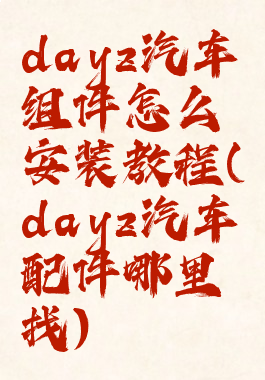 dayz汽车
组件怎么
安装教程(
dayz汽车
配件哪里
找)